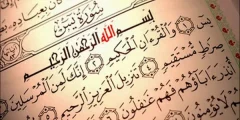 سورة يس
بسم الله الرحمن الرحيم
يس والقرءان الحكيم إنك لمن المرسلين
صرط مستقيم تنزيل العزيز الرحيم
أنذر ءاباؤهم فهم غفلون
لا يؤمنون